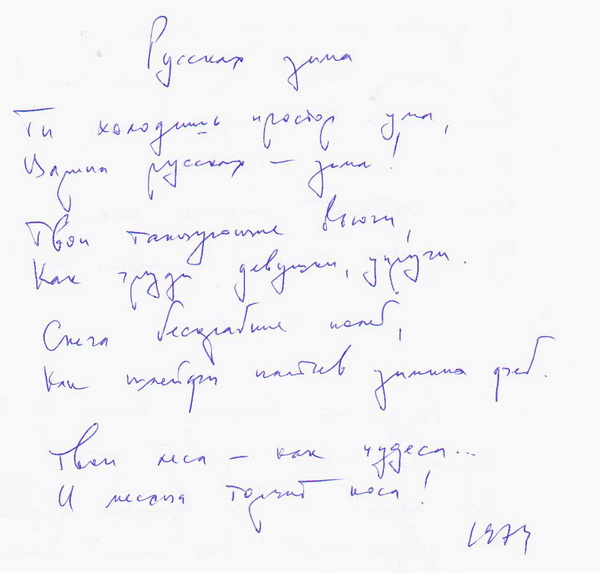 Русская зима
Ты холодишь простор ума,
Царица русская — зима!
Твои танцующие вьюги,
Как груди девушки, упруги.
Снега бескрайние полей,
Как шлейфы платьев зимних фей.
Твои леса — как чудеса...
И месяца торчит коса!